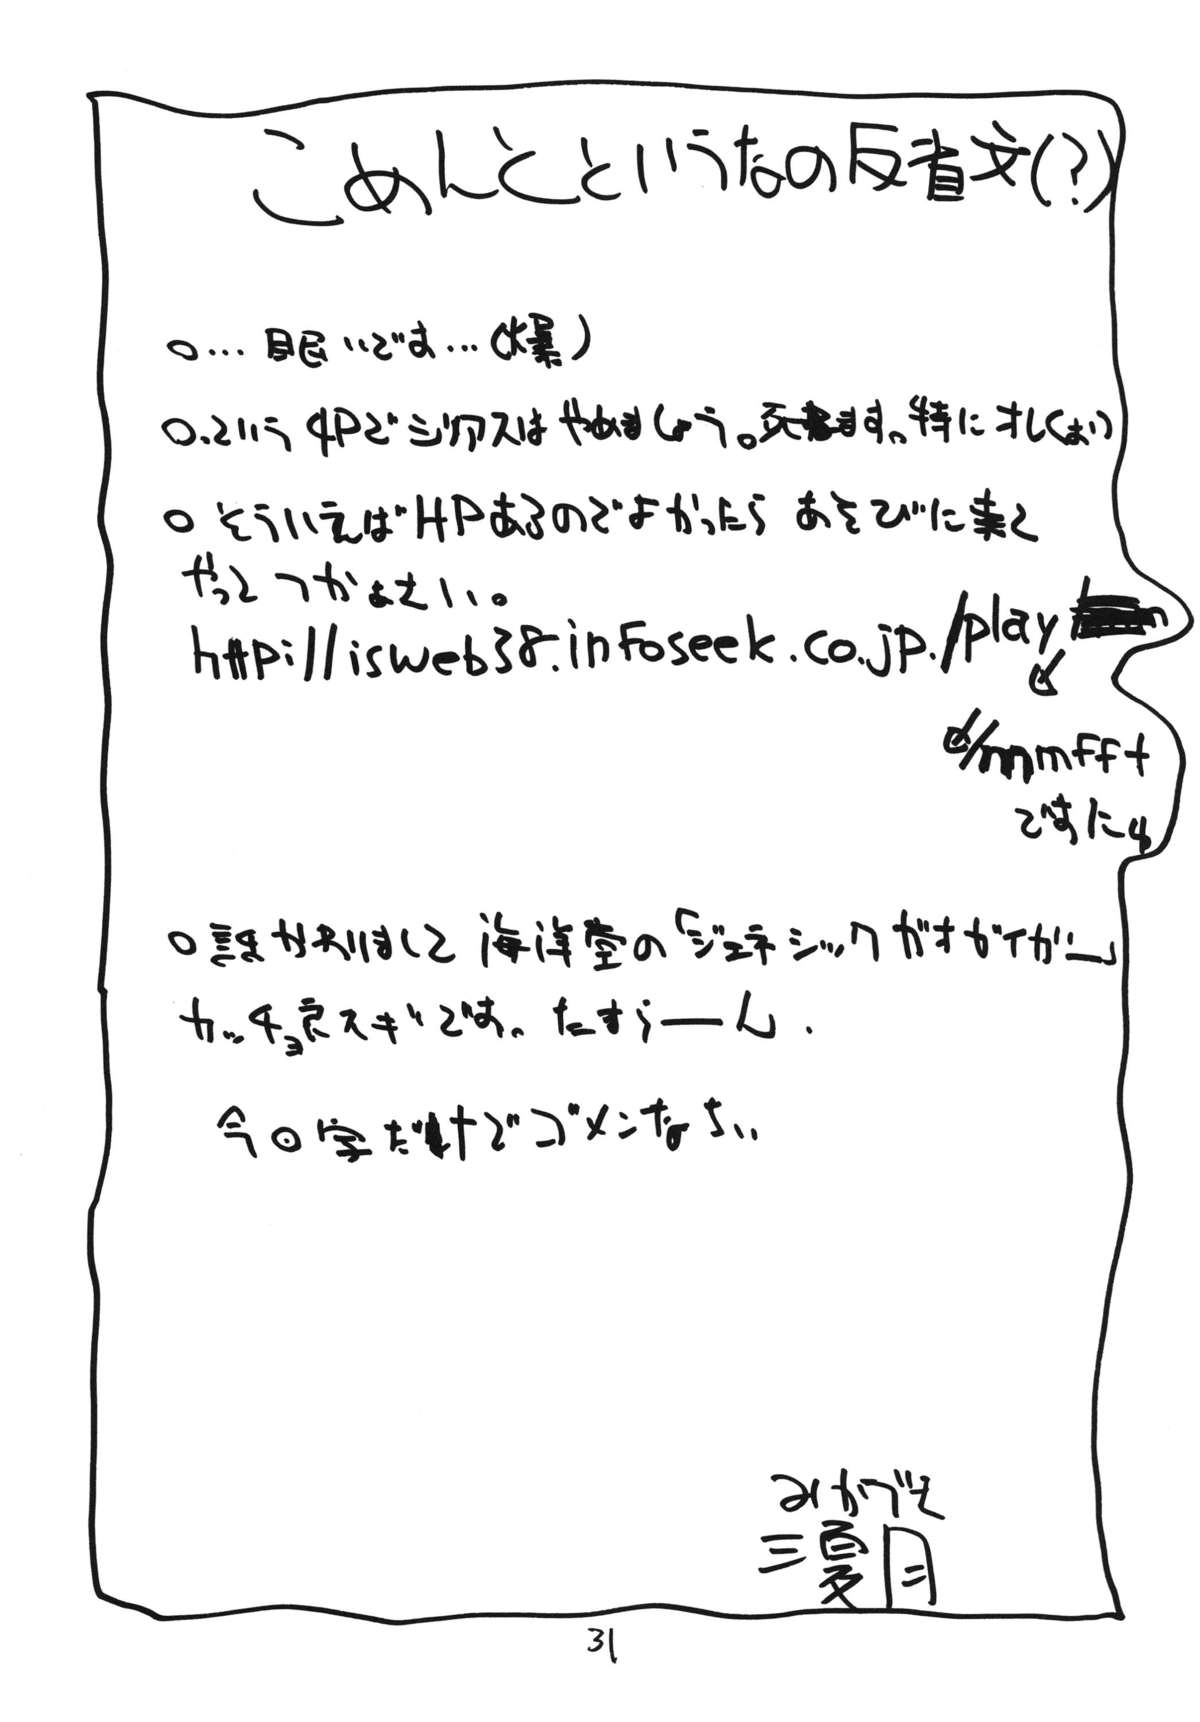 こめんとというなの反省文(?)
○…眠いです…(爆)
○.という4Pでジリアスはやめましょう。死ねます。特にオレくおい
○そういえばHPあるのでよかったらあそびに来て
やってつかぁさい。
http://isweb38.infoseek.co.jp./play
/mmfft
ですにゅ
○誰かおりまして海洋堂の「ジェネシックガオガイガー」
カッチョ良スギです。たすらーん.
今回字だけでゴメンなさい
みかづき
三夏月
31